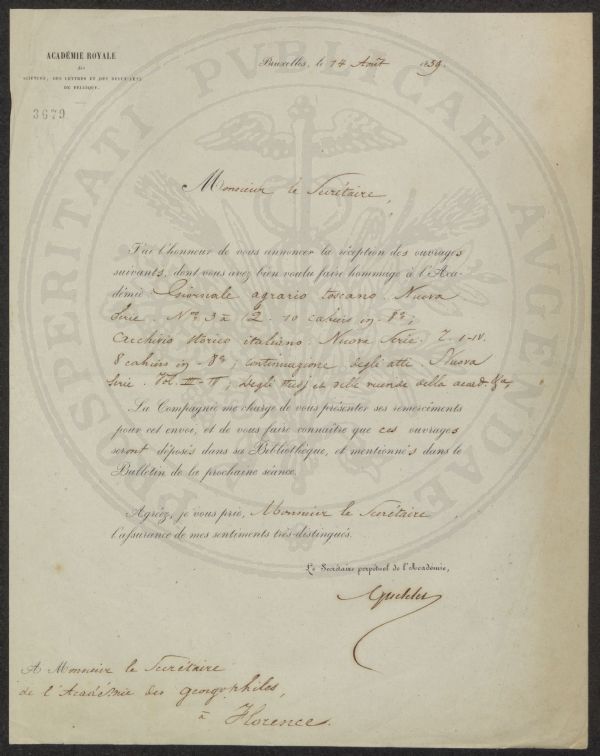 ACADÉMIE ROYALE
des
SCIENCES, DES LETTRES ET DES BEAUX-ARTS
DE BELGIQUE.
3679
Bruxelles, le 14 Août 1859.
Monsieur le Secrétaire,
J'ai l'honneur de vous annoncer la réception des ouvrages
suivants, dont vous avez bien voulu faire hommage à l'Aca-
démie: Giornale agrario toscano. Nuova
Serie. Nos 3 à 12. 10 cahiers in-8º;
Archivio storico italiano. Nuova Serie. T. I-IV.
8 cahiers in-8º; continuazione degli atti. Nuova
Serie. Vol. III-; degli studj e delle vicende della acad.
La Compagnie me charge de vous présenter ses remercîments
pour cet envoi, et de vous faire connaître que ces ouvrages
seront déposés dans sa Bibliothèque, et mentionnés dans le
Bulletin de la prochaine séance.
Agréez, je vous prie, Monsieur le Secrétaire
l'assurance de mes sentiments très-distingués.
Le Secrétaire perpétuel de l'Académie,
Quetelet
A Monsieur le Secrétaire
de l'Académie des géorgophiles,
à Florence.
PROSPERITATI PVBLICAE AVGENDAE